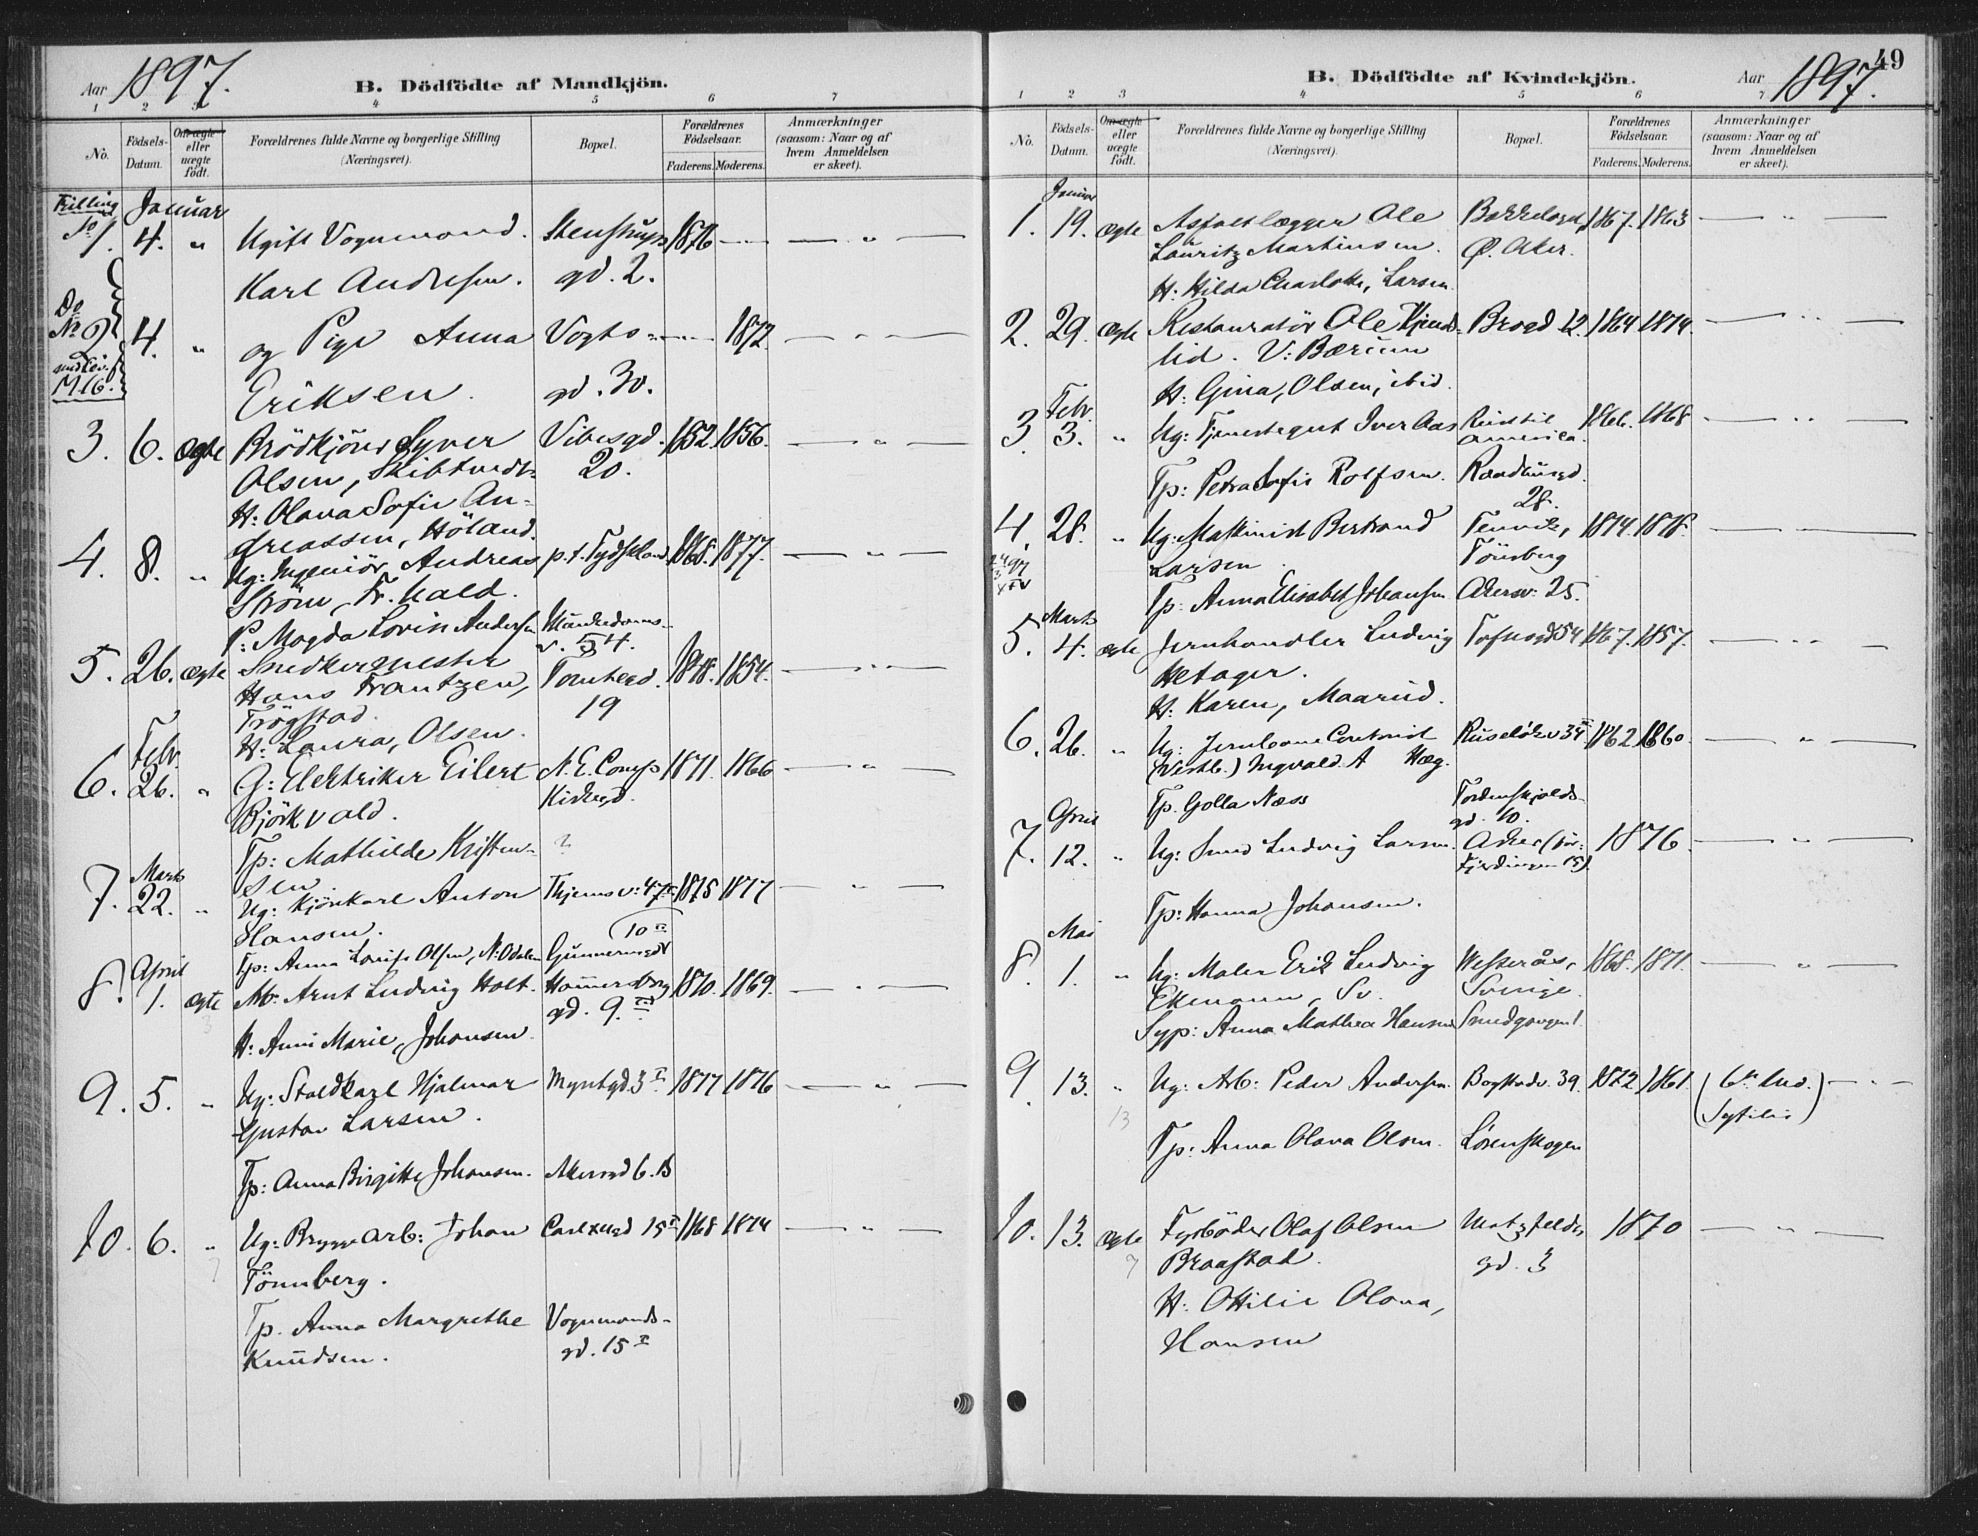 Aar 1897.
B. Dödfödte af Mandkjön.
1 2 3 4 5 6 7
No.
Födsels-
Datum.
Om ægte
eller
uægte
födt.
Forældrenes fulde Navne og borgerlige Stilling
(Næringsvei).
Bopæl.
Forældrenes
Födselsaar.
Faderens. Moderens.
Anmærkninger
(saasom: Naar og af
hvem Anmeldelsen
er skeet).
Trilling Januar
No 1. 4. " Ugift Vognmand. Stenstrups 1876 — — " —
Karl Andresen. gd. 2.
Do
No 2 4. " og Pige Anna Vogts — 1872. — " —
M 16. Eriksen. gd. 30.
3. 6. ægte Brödkjörer Syver Vibesgd. 1852. 1856. — " —
Olsen, 20.
H: Olava Sofie An-
dreassen, Höland.
4. 8. " Ug: Ingeniör Andreas p.t. Tydskland 1868. 1877. — " —
Ström, Fr. hald.
P: Magda Lovise Andersen Munkedams-
v. 54.
5. 26. ægte Snedkermester 1848. 1854. — " —
Hans Frantzen, 19
Trögstad.
H: Laura, Olsen.
Febr.
6. 26. " G: Elektriker Eilert N. E. Comp 1871. 1866 — " —
Björkvald. Kirkegd.
Tp: Mathilde Kristen- ?
sen
Marts
7. 22. " Ug: Kjörekarl Anton 1875 1877 — " —
Hansen. 10
Tp: Anna Lovise Olsen, N. Odalen
April
8. 1. ægte M: Arnt Ludvig Holt. Hammerborg 1870. 1869. — " —
gd. 9.
H: Anne Marie, Johansen
9. 5. " Ug: Staldkarl Hjalmar Myntgd. 3 I 1877 1876 — " —
Gustav Larsen.
Tp: Anna Birgitte Johansen. Akersgd 6. B
10. 6. " Ug: Bryggearb: Johan Carl XIIgd 15 1868 1874 — " —
Tönnberg.
Tp. Anna Margrethe Vognmands-
Knudsen. gd. 15 I
49
B. Dödfödte af Kvindekjön.
Aar 1897.
1 2 3 4 5 6 7
No.
Födsels-
Datum.
Om ægte
eller
uægte
födt.
Forældrenes fulde Navne og borgerlige Stilling
(Næringsvei).
Bopæl.
Forældrenes
Födselsaar.
Faderens. Moderens.
Anmærkninger
(saasom: Naar og af
hvem Anmeldelsen
er skeet).
Januar
1. 19. ægte Asfaltlægger Ole 1867. 1863 — " —
Lauritz Martinsen. Ö. Aker.
H: Hilda Charlotte, Larsen
2. 29. ægte Restauratör Ole Brogd 12. 1864 1874. — " —
lid. V: Bærum
H: Gina, Olsen, ibid.
Febr.
3. 3. " Ug: Tjenestegut Iver Aas Reist til 1866. 1868 — " —
Amerika.
Tp: Petra Sofie Rolfsen.
28.
4. 28. " Ug: Maskinist Bertrand 1874. 1878. — " —
Larsen. Tönsberg
Tp: Anna Elisabet Johansen Akersv: 25.
Marts
5. 4. ægte Jernhandler Ludvig Toftesgd 54 1867. 1857. — " —
Hetager.
H: Karen, Maarud.
6. 26. " Ug: Jernbane Contorist Ruselökv 34 1862. 1860. — " —
(Vestb.) Ingvald A Hæg.
Tp. Golla Næss Tordenskjolds-
gd. 10.
April
7. 12. " Ug: Smed Ludvig Larsen. 1876 — " —
Tp: Hanna Johansen.
Mai
8. 1. " Ug: Maler Erik Ludvig Westerås, 1868. 1871. — " —
Ekmann, Sv. Sverige.
Syp: Anna Mathea Hansen Smedgangen 1
9. 13. " Ug: Arb: Peder Andersen. Bogstadv. 39. 1872. 1861 — " —
(Syfilis)
13
Tp: Anna Olava Olsen. Lörenskogen
10. 13. ægte Fyrböder Olaf Olsen Motzfeldts 1870 — " —
Braastad. gd. 3
H: Ottilie Olava,
Hansen